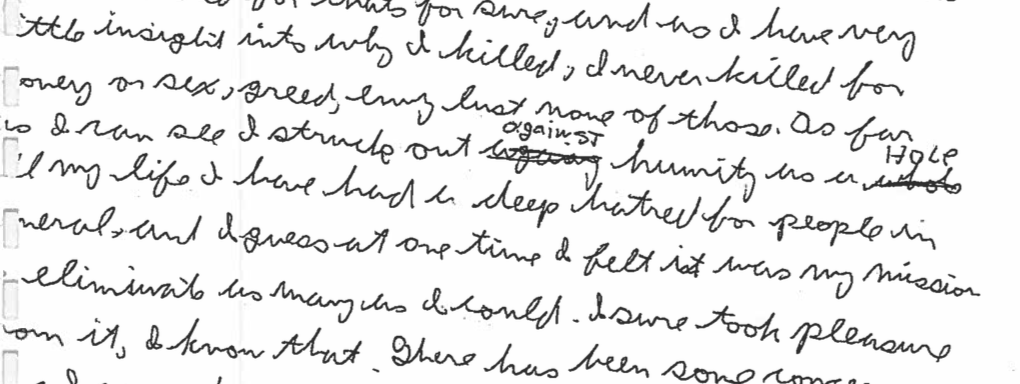 for thats for sure, and as I have very
ittle insight into why I killed, I never killed for
oney or sex, greed, envy lust none of those. As far
as I can see I struck out against humity as a HOLE
l my life I have had a deep hatred for people in
neral, and I guess at one time I felt ist was my mission
eliminate as many as I could. I sure took pleasure
om it, I know that. There has been some